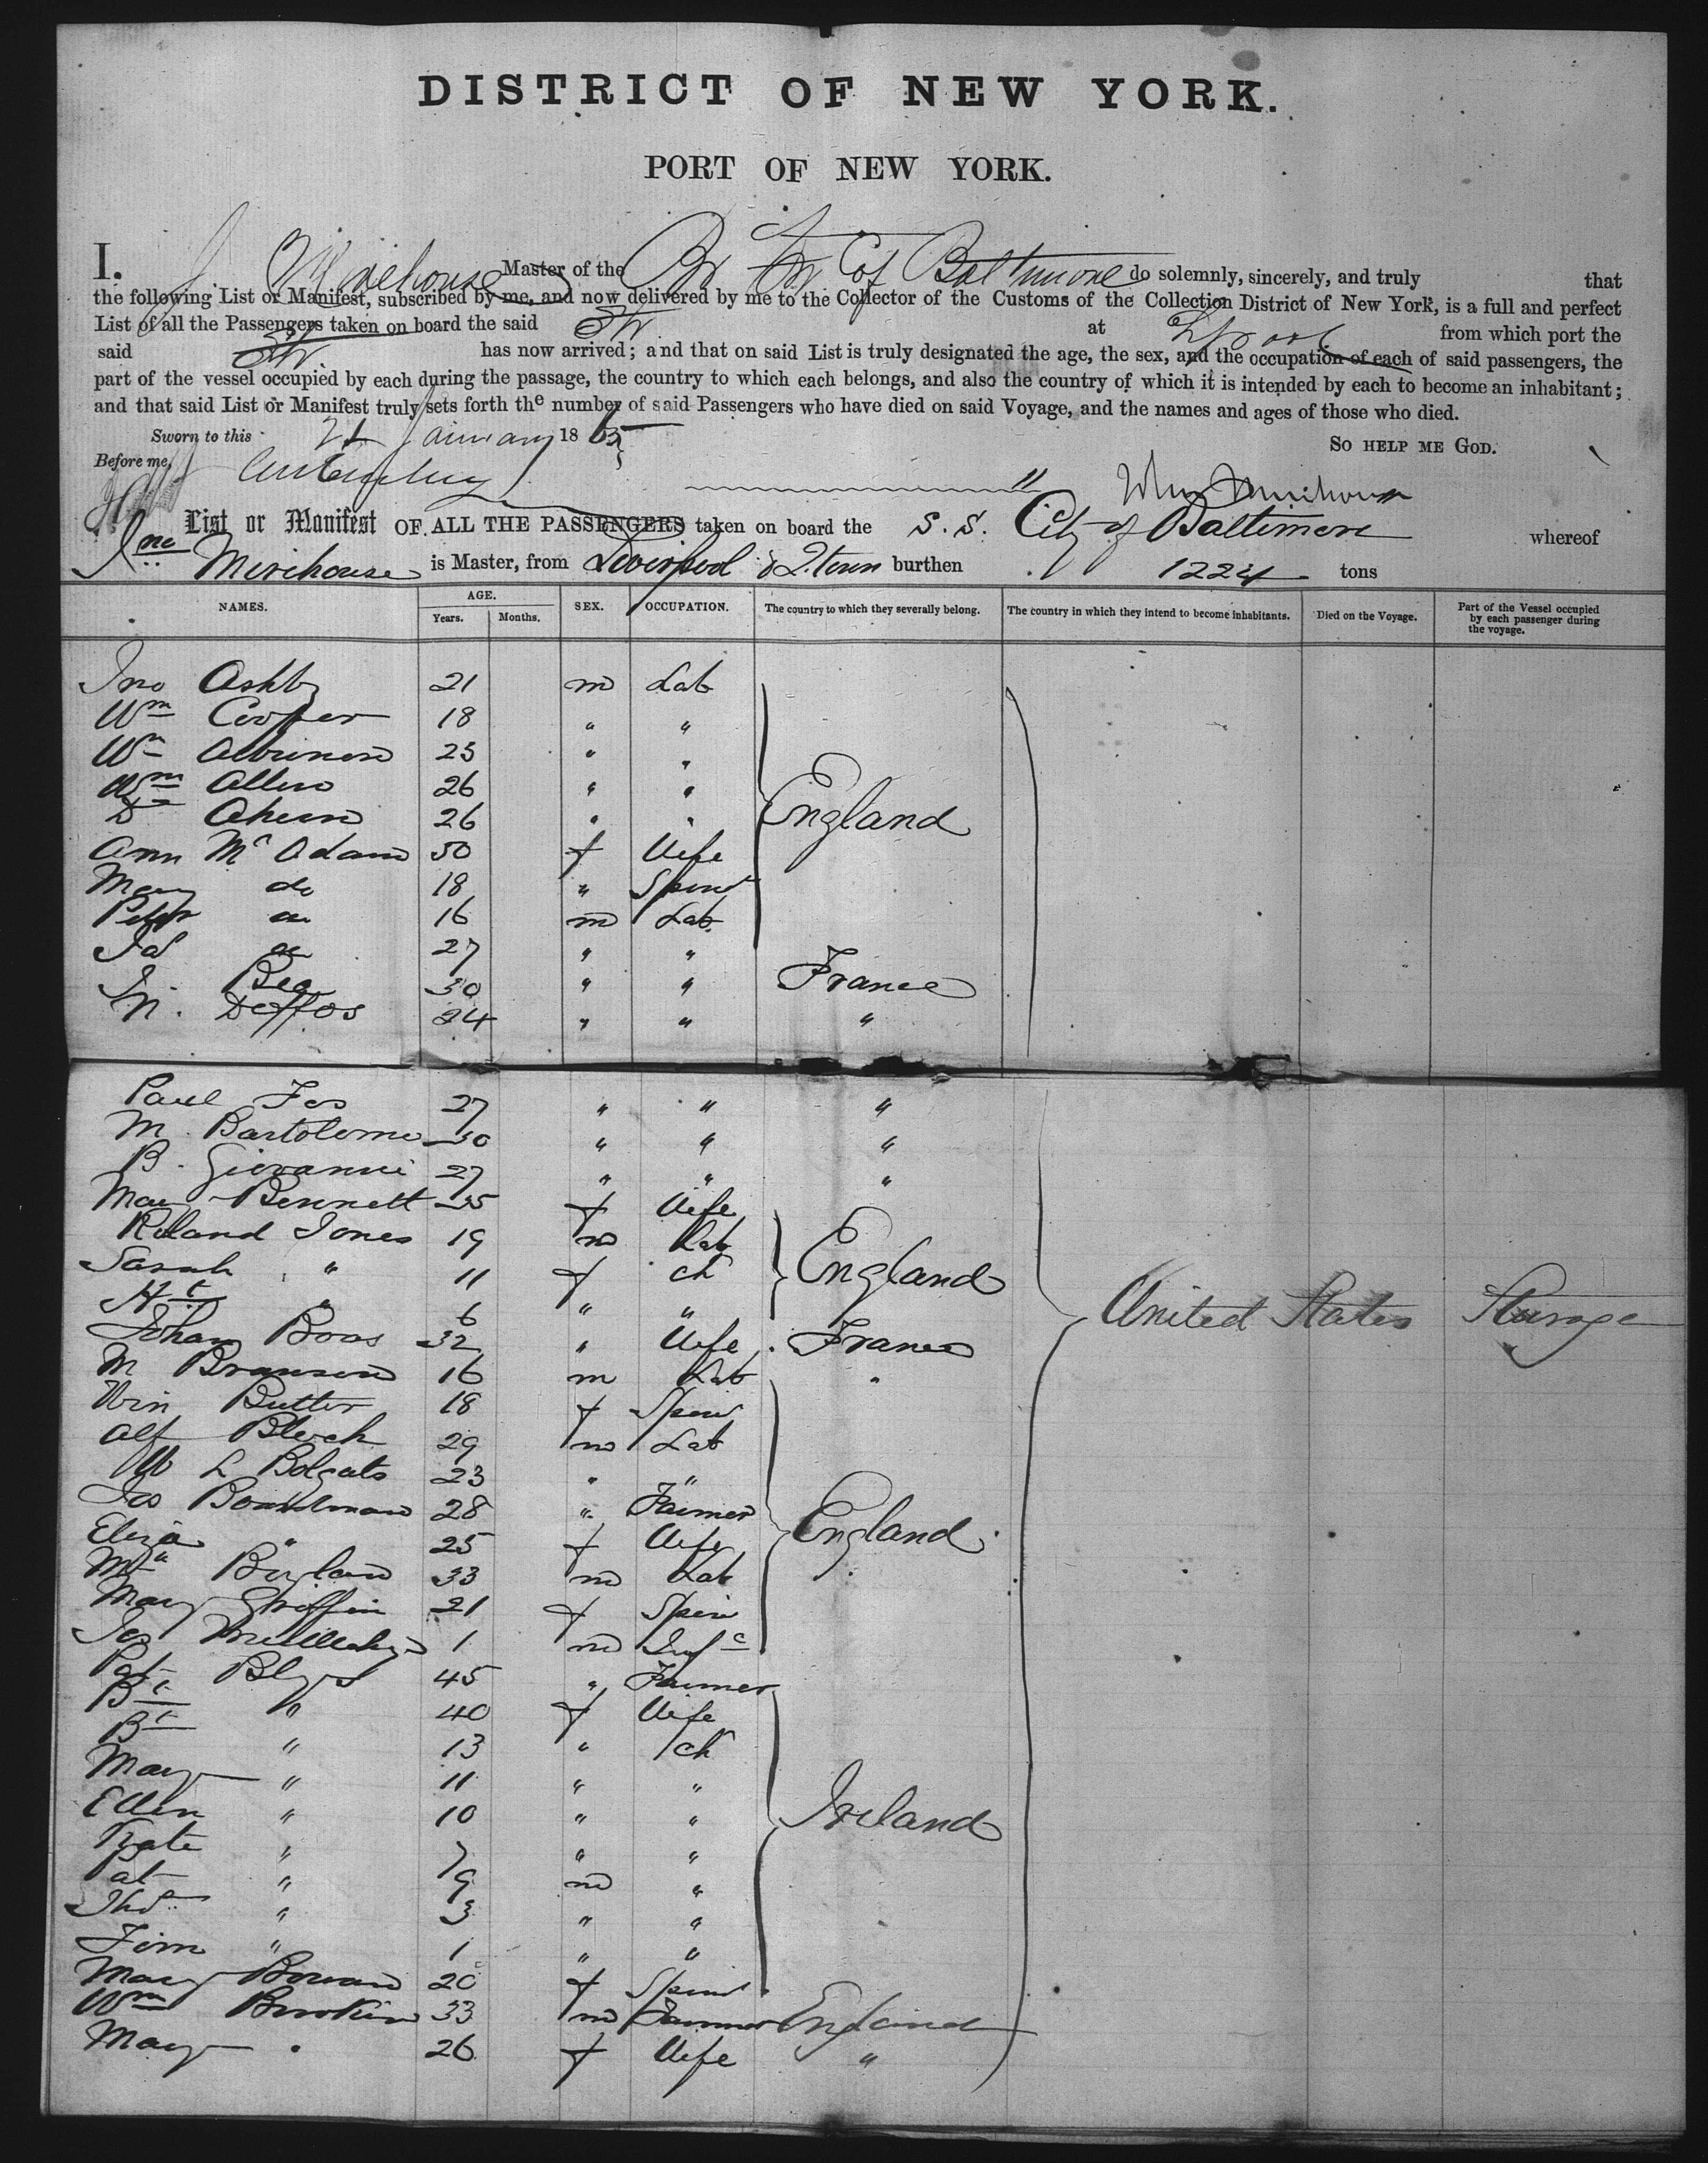 DISTRICT OF NEW YORK.
PORT OF NEW YORK.
I. J. Mirehouse Master of the Br Str C of Baltimore do solemnly, sincerely, and truly that
the following List or Manifest, subscribed by me, and now delivered by me to the Collector of the Customs of the Collection District of New York, is a full and perfect
List of all the Passengers taken on board the said Str. at L'pool from which port the
said Str. has now arrived; and that on said List is truly designated the age, the sex, and the occupation of each of said passengers, the
part of the vessel occupied by each during the passage, the country to which each belongs, and also the country of which it is intended by each to become an inhabitant;
and that said List or Manifest truly sets forth the number of said Passengers who have died on said Voyage, and the names and ages of those who died.
Sworn to this 21 January 1865
SO HELP ME GOD.
Before me,
Jno Mirehouse
List or Manifest OF ALL THE PASSENGERS taken on board the S. S. City of Baltimore whereof
Jno Mirehouse is Master, from Liverpool & Q.town burthen 1224 tons
NAMES. AGE. Years. Months. SEX. OCCUPATION. The country to which they severally belong. The country in which they intend to become inhabitants. Died on the Voyage. Part of the Vessel occupied by each passenger during the voyage.
Jno Ashby 21 m Lab
Wm Cooper 18 " "
Wm 25 " "
Wm Allen 26 " "
Ahern 26 " " England
Ann Mc Adam 50 f Wife
Mary do 18 " Spins
Peter do 16 m Lab
Jas do 27 " "
J. Bea 30 " " France
N. Deffos 24 " " "
Paul Fos 27 " " "
M. Bartolome 30 " " "
B. Giovanni 27 " " "
Mary Bennett 35 f Wife
Roland Jones 19 m Lab
Sarah " 11 f ch England
Ht " 6 " " United States Steerage
Johan Boas 32 " Wife France
M Branson 16 m Lab "
Win Butter 18 f Spins
Alf Bloch 29 m Lab
W L Bolgats 23 " "
Jas Boardman 28 " Farmer
Eliza " 25 f Wife England
Ml Boylan 33 m Lab
Mary Griffin 21 f Spin
Jas Mulleahy 1 m Inf
Pat 45 " Farmer
Bt " 40 f Wife
Bt " 13 " ch
Mary " 11 " "
Ellen " 10 " " Ireland
Kate " 7 " "
Pat " 9 m "
Thos " 3 " "
Tim " 1 " "
Mary Bowan 20 f Spins
Wm Brookin 33 m Farmer England
Mary " 26 f Wife "